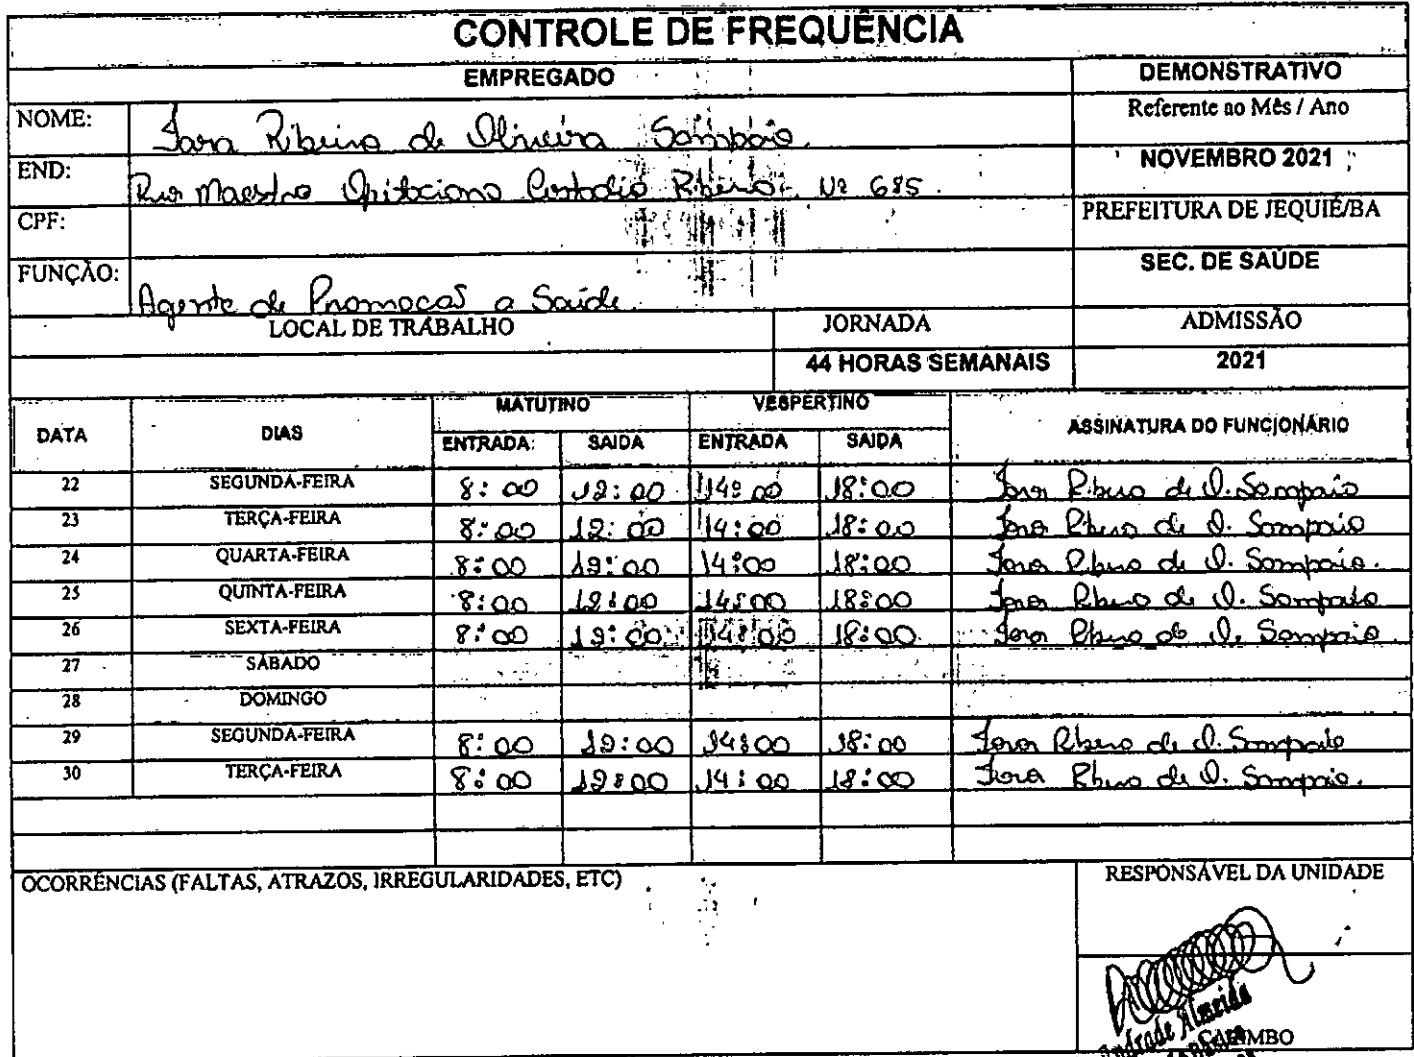 CONTROLE DE FREQUÊNCIA
EMPREGADO
DEMONSTRATIVO
NOME: Iara Ribeiro de Oliveira Sampaio.
Referente ao Mês / Ano
END: Rua Maestro Custodio Ribeiro Nº 685.
NOVEMBRO 2021
CPF:
PREFEITURA DE JEQUIÉ/BA
FUNÇÃO: Agente de Promocas a Saúde
SEC. DE SAÚDE
LOCAL DE TRABALHO JORNADA ADMISSÃO
44 HORAS SEMANAIS 2021
DATA DIAS MATUTINO VESPERTINO ASSINATURA DO FUNCIONÁRIO
ENTRADA: SAIDA ENTRADA SAIDA
22 SEGUNDA-FEIRA 8:00 12:00 14:00 18:00 Iara Ribeiro de O. Sampaio
23 TERÇA-FEIRA 8:00 12:00 14:00 18:00 Iara Ribeiro de O. Sampaio
24 QUARTA-FEIRA 8:00 12:00 14:00 18:00 Iara Ribeiro de O. Sampaio.
25 QUINTA-FEIRA 8:00 12:00 14:00 18:00 Iara Ribeiro de O. Sampaio
26 SEXTA-FEIRA 8:00 12:00 14:00 18:00 Iara Ribeiro de O. Sampaio
27 SÁBADO
28 DOMINGO
29 SEGUNDA-FEIRA 8:00 12:00 14:00 18:00 Iara Ribeiro de O. Sampaio
30 TERÇA-FEIRA 8:00 12:00 14:00 18:00 Iara Ribeiro de O. Sampaio.
OCORRÊNCIAS (FALTAS, ATRAZOS, IRREGULARIDADES, ETC)
RESPONSÁVEL DA UNIDADE
Andrade Almeida
CARIMBO